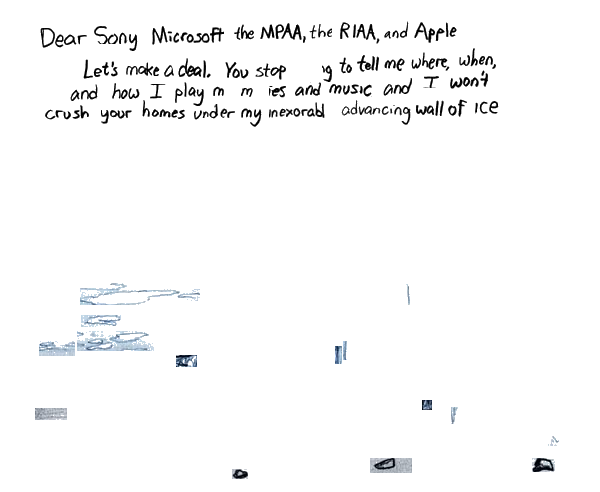 Dear Sony Microsoft the MPAA, the RIAA, and Apple
Let's make a deal. You stop to tell me where, when,
and how I play and music and I won't
crush your homes under my advancing wall of ICE